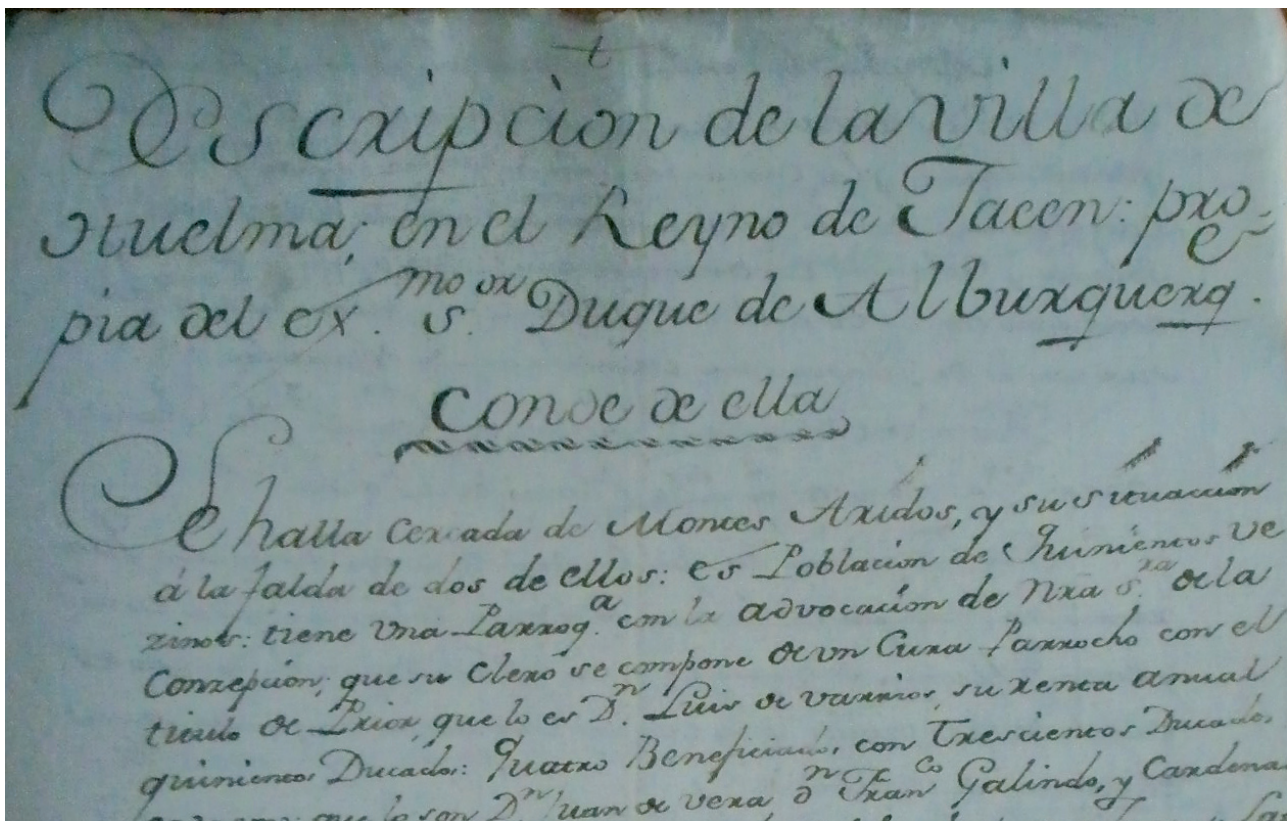 t
Descripcion de la villa de
Huelma; en el Reyno de Jaeen: pro-
pia del ex.mo s.or Duque de Alburquerq.e
Conde de ella
Se halla cercada de Montes Aridos, y su situacion
á la falda de dos de ellos: es Poblacion de Quinientos Ve
zinos: tiene Una Parroq.a con la advocacion de Nra s.ra de la
Conzepcion; que su Clero se compone de un Cura Parrocho con el
titulo de Prior, que lo es D.n Luis de Varrios, su renta anual
quinientos Ducados: Quatro Beneficiados con Trescientos Ducados
que lo son D.n Juan de Vera, D.n Fran.co Galindo, y Cardena